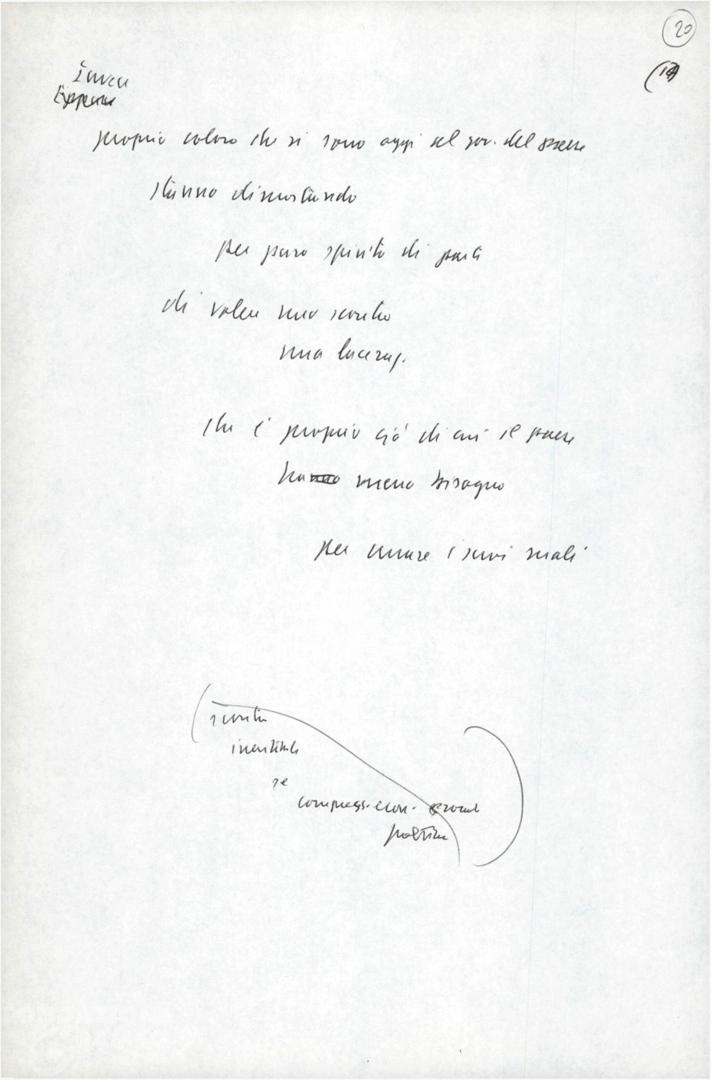 20
(19)
invece
Eppure
proprio coloro che vi sono oggi al gov. del paese
stanno dimostrando
per puro spirito di parte
di volere uno scontro
una laceraz.
che è proprio ciò di cui il paese
ha meno bisogno
per curare i suoi mali
(scontro
inevitabile
se
compress. econ. social
politica)